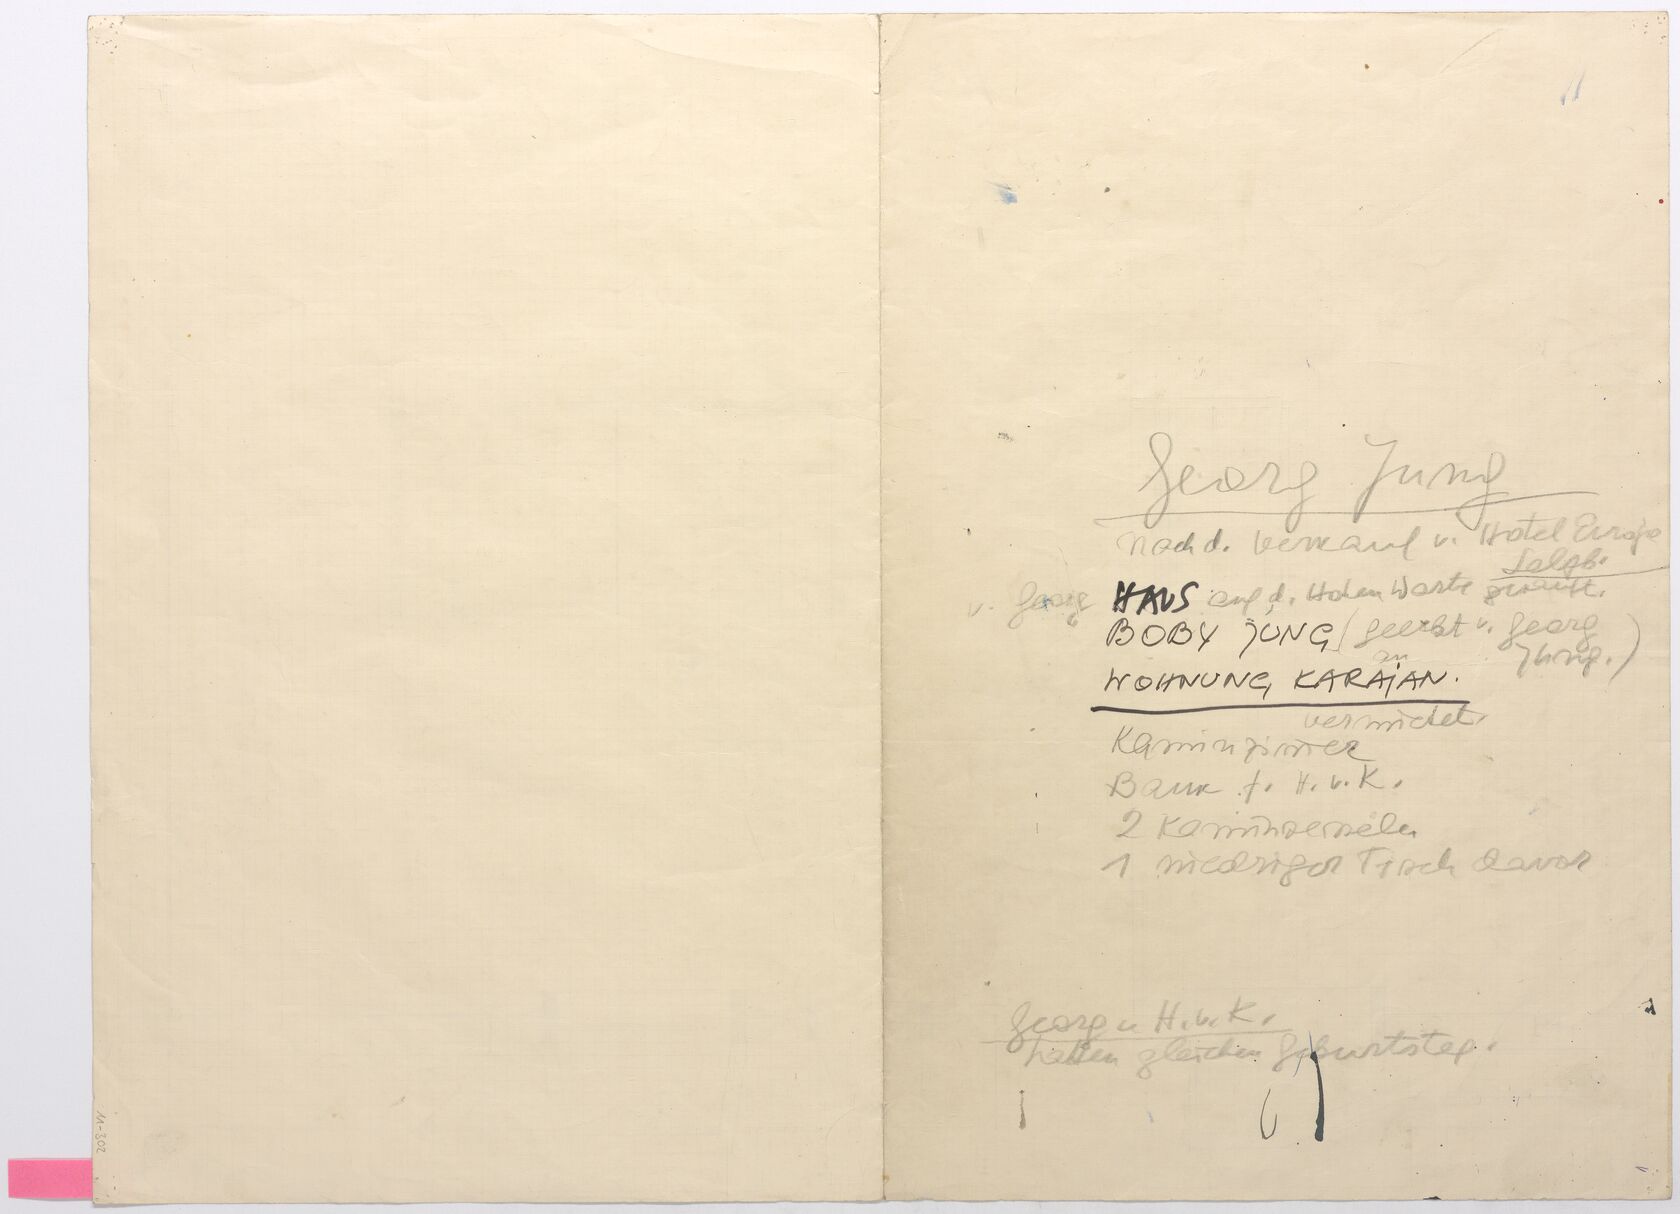 Georg Jung
nach d. Verkauf v. Hotel Europa
Salzb.
v. Georg HAUS auf d. Hohen Warte gekauft.
BOBY JUNG (geerbt v. Georg
Jung.)
an
WOHNUNG KARAJAN.
vermietet.
Kaminzimmer
Bank f. H. v. K.
2 Kaminsesseln
1 niedriger Tisch davor
Georg u H. v. K.
hatten gleichen Geburtstag.
11-302